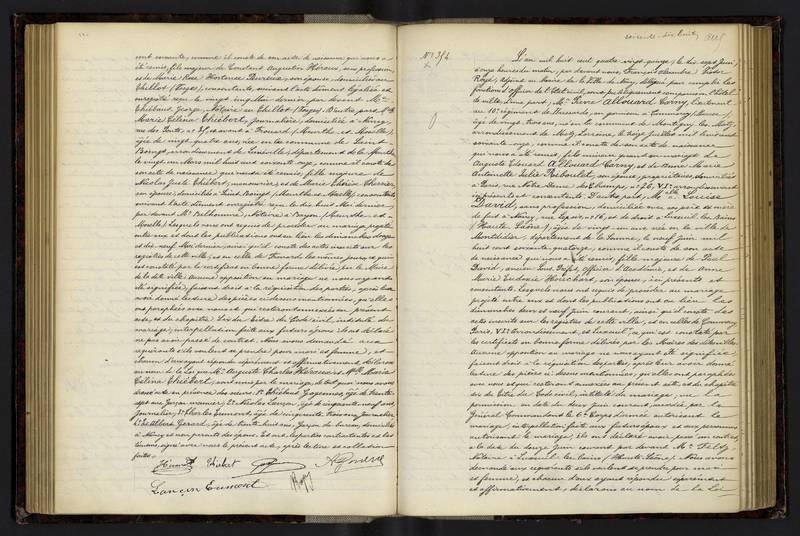 ont consenti, comme il conste de son acte de naissance qui nous a
été remis, fils majeur de Constant Augustin Héraux, sans profession
et de Marie Rose Hortense Devieux, son épouse, domiciliés au
Thillot (Vosges), consentants, suivant l'acte dûment légalisé et
enregistré reçu le vingt cinq Mai dernier par devant Me
Thiébaut George, Notaire au Thillot (Vosges). D'autre part, Mlle
Marie Célina Thiébert, journalière, domiciliée à Nancy,
rue des Ponts, et avant à Frouard (Meurthe et Moselle),
âgée de vingt quatre ans, née en la commune de Saint
arrondissement de Lunéville, département de la Meurthe,
le vingt un Mars mil huit cent soixante onze, comme il conste de
son acte de naissance qui nous a été remis, fille majeure de
Nicolas Jules Thiébert, manoeuvrier, et de Marie Thérèse
son épouse, domiciliés à (Meurthe et Moselle), consentants
suivant l'acte dûment enregistré reçu le dix huit Mai dernier
par devant Me Belhomme, Notaire à Bayon (Meurthe et
Moselle). Lesquels nous ont requis de procéder au mariage projeté
entre eux et dont les publications ont eu lieu les dimanches douze
et dix neuf Mai dernier, ainsi qu'il conste des actes inscrits sur les
registres de cette ville, et en celle de Frouard les mêmes jours, ce qui
est constaté par le certificat en bonne forme délivré par le Maire
de la dite ville. Aucune opposition au mariage ne nous ayant
été signifiée, faisant droit à la réquisition des parties, après leur
avoir donné lecture des pièces ci dessus mentionnées, qu'elles
ont paraphées avec nous et qui resteront annexées au présent
acte, et du chapitre six du titre du Code civil, intitulé du
mariage; interpellation faite aux futurs époux, ils ont déclaré
ne pas avoir passé de contrat. Nous avons demandé aux
requérants s'ils veulent se prendre pour mari et femme; et
chacun d'eux ayant répondu séparément et affirmativement, déclarons
au nom de la Loi que Mr Auguste Charles Héraux et Mlle Marie
Célina Thiébert, sont unis par le mariage, de tout quoi nous avons
dressé acte en présence des sieurs: 1° Thiébert âgé de trente
sept ans, 2° Nicolas Lançon, âgé de cinquante neuf ans,
journalier, 3° Charles Eumont, âgé de cinquante trois ans, journalier,
4° Albert Gérard, âgé de trente huit ans, Garçon de bureau, domiciliés
à Nancy et non parents des époux. Et ont, les parties contractantes et les
témoins, signé avec nous le présent acte, après lecture et collation
faites.
Thiébert
Lançon Eumont
N° 392
L'an mil huit cent quatre vingt quinze, le dix sept Juin,
à onze heures du matin, par devant nous, François Alexandre Victor
adjoint au Maire de la Ville de Nancy, délégué pour remplir les
fonctions d'officier de l'État civil, sont publiquement comparus en l'hôtel
de ville, d'une part, Mr Pierre Allouard Carny, Lieutenant
au 10e régiment de Hussards, en garnison à Commercy (Meuse),
âgé de vingt trois ans, né en la commune de Montigny lès Metz,
arrondissement de Metz, Lorraine, le treize Juillet mil huit cent
soixante onze, comme il conste de son acte de naissance
qui nous a été remis, fils mineur quant au mariage de
Auguste Édouard Allouard Carny, et de Anne Marie
Antoinette Julie Reboulet, son épouse, propriétaires, domiciliés
à Paris, rue Notre Dame des Champs, n° 26, VIe arrondissement,
ici présents et consentants. D'autre part, Mlle Louise
David, sans profession, domiciliée avec ses père et mère
de fait à Nancy, n° 16, et de droit à Luxeuil les Bains
(Haute Saône), âgée de vingt un ans, née en la ville de
Montdidier, département de la Somme, le neuf Juin mil
huit cent soixante quatorze, comme il conste de son acte
de naissance qui nous a été remis, fille majeure de Paul
David, ancien Sous Préfet, Officier d'Académie, et de Anne
Marie Eudoxie Houchard, son épouse, ici présents et
consentants. Lesquels nous ont requis de procéder au mariage
projeté entre eux et dont les publications ont eu lieu les
dimanches deux et neuf Juin courant, ainsi qu'il conste des
actes inscrits sur les registres de cette ville, et en celles de Commercy,
Paris, VIe arrondissement, et Luxeuil, ce qui est constaté par
les certificats en bonne forme délivrés par les Maires des dites villes.
Aucune opposition au mariage ne nous ayant été signifiée,
faisant droit à la réquisition des parties, après leur avoir donné
lecture des pièces ci dessus mentionnées, qu'elles ont paraphées
avec nous et qui resteront annexées au présent acte, et du chapitre
six du titre du Code civil, intitulé du mariage, vu la
permission en date du deux Juin courant, accordée par le
Général Commandant le 6e Corps d'armée autorisant le
mariage, interpellation faite aux futurs époux et aux personnes
autorisant le mariage, ils ont déclaré avoir passé un contrat,
à la date du douze Juin courant par devant Me
Notaire à Luxeuil les bains (Haute Saône). Nous avons
demandé aux requérants s'ils veulent se prendre pour mari
et femme; et chacun d'eux ayant répondu séparément
et affirmativement, déclarons au nom de la Loi